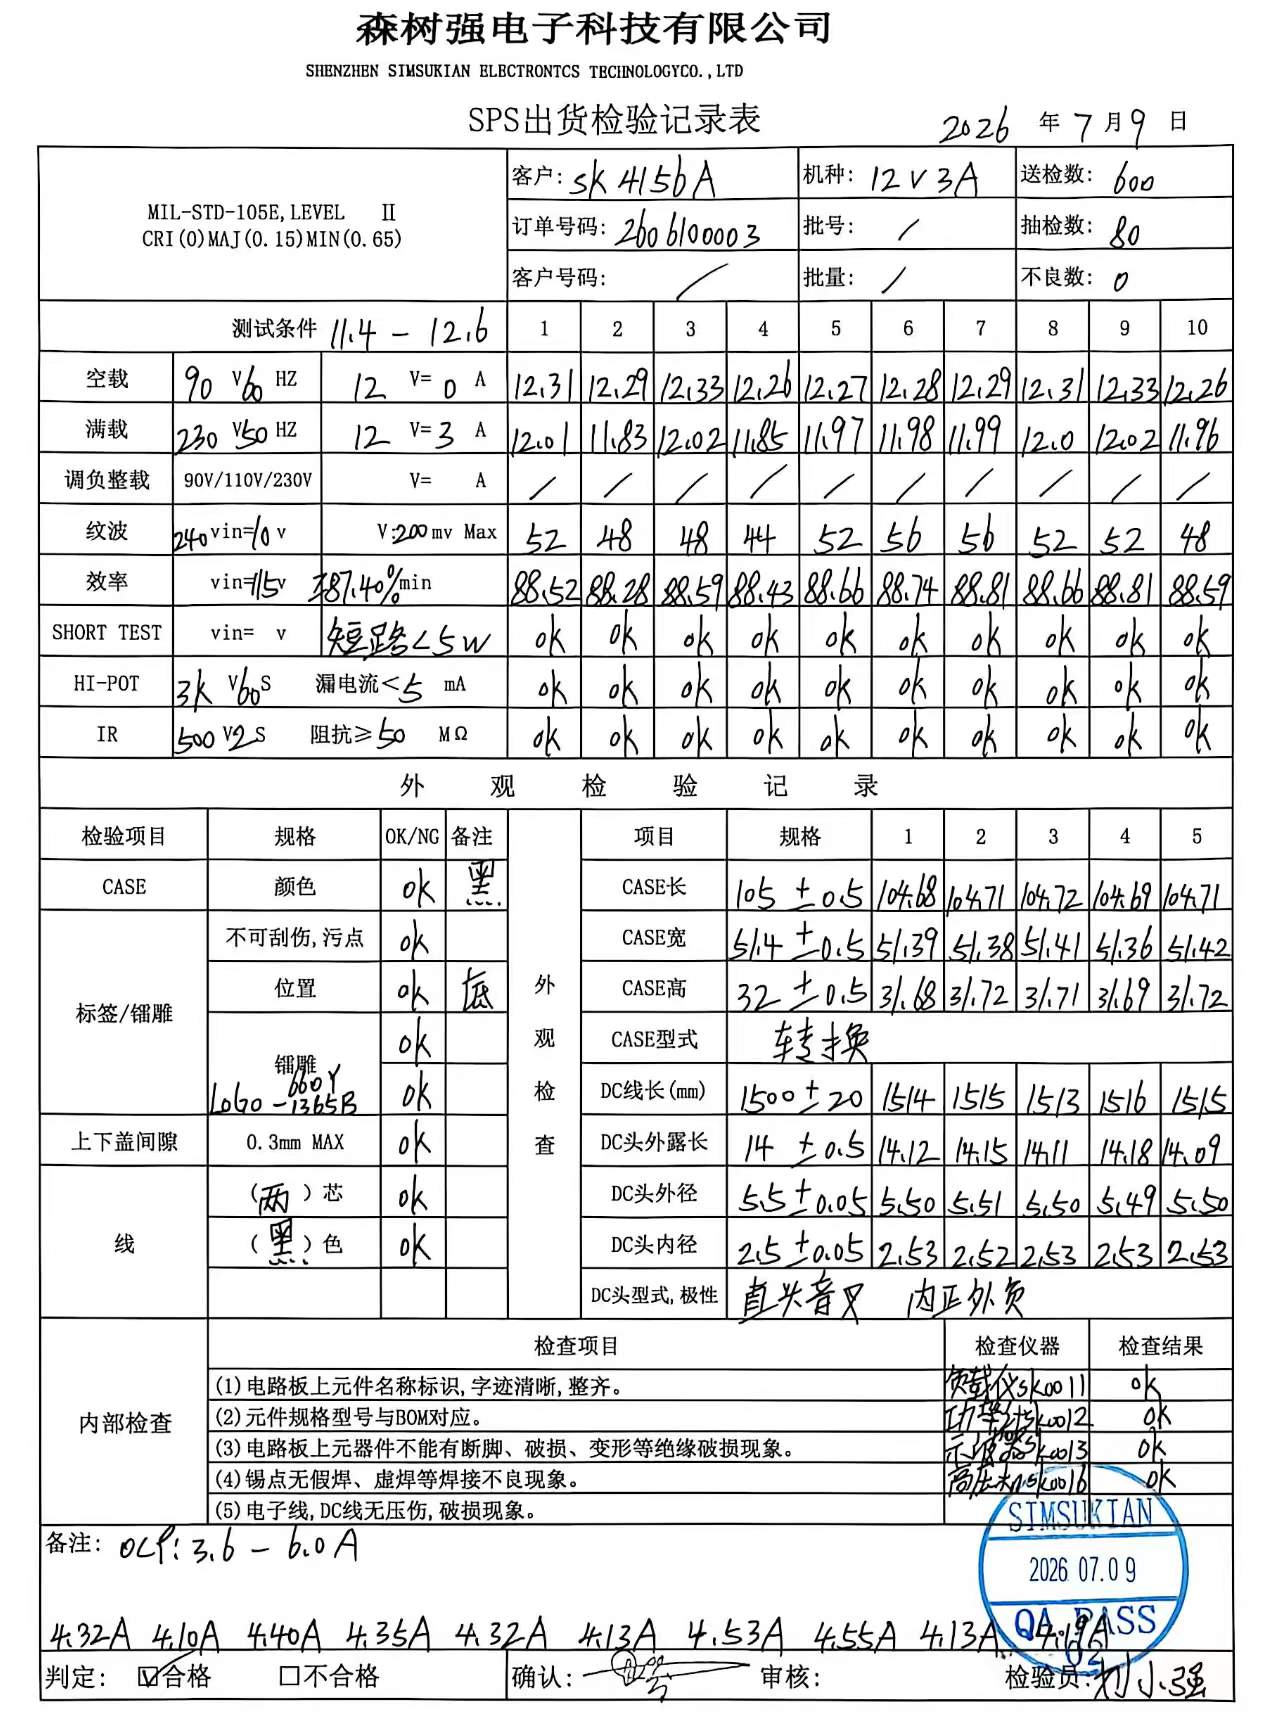 森树强电子科技有限公司
SHENZHEN SIMSUKIAN ELECTRONTCS TECHNOLOGYCO.,LTD
SPS出货检验记录表 2026 年 7 月 9 日
MIL-STD-105E,LEVEL Ⅱ
CRI(0)MAJ(0.15)MIN(0.65)
客户: SK415bA 机种: 12V3A 送检数: 600
订单号码: 2606100003 批号: / 抽检数: 80
客户号码: / 批量: / 不良数: 0
测试条件 11.4 - 12.6 1 2 3 4 5 6 7 8 9 10
空载 90 V 60 HZ 12 V= 0 A 12.31 12.29 12.33 12.26 12.27 12.28 12.29 12.31 12.33 12.26
满载 230 V 50 HZ 12 V= 3 A 12.01 11.83 12.02 11.85 11.97 11.98 11.99 12.0 12.02 11.96
调负整载 90V/110V/230V V= A / / / / / / / / / /
纹波 240 vin=10 v V:200 mv Max 52 48 48 44 52 56 56 52 52 48
效率 vin=115v 87.40% min 88.52 88.28 88.59 88.43 88.66 88.74 88.81 88.66 88.81 88.59
SHORT TEST vin= v 短路<5W OK OK OK OK OK OK OK OK OK OK
HI-POT 3K V 60 S 漏电流< 5 mA OK OK OK OK OK OK OK OK OK OK
IR 500 V 2 S 阻抗≥ 50 MΩ OK OK OK OK OK OK OK OK OK OK
外观检验记录
检验项目 规格 OK/NG 备注 外观检查 项目 规格 1 2 3 4 5
CASE 颜色 OK 黑 CASE长 105 ± 0.5 104.68 104.71 104.72 104.69 104.71
标签/镭雕 不可刮伤,污点 OK CASE宽 51.4 ± 0.5 51.39 51.38 51.41 51.36 51.42
位置 OK 底 CASE高 32 ± 0.5 31.68 31.72 31.71 31.69 31.72
镭雕 OK CASE型式 转换
660Y
LOGO -1365B OK DC线长(mm) 1500 ± 20 1514 1515 1513 1516 1515
上下盖间隙 0.3mm MAX OK DC头外露长 14 ± 0.5 14.12 14.15 14.11 14.18 14.09
线 (两)芯 OK DC头外径 5.5 ± 0.05 5.50 5.51 5.50 5.49 5.50
(黑)色 OK DC头内径 2.5 ± 0.05 2.53 2.52 2.53 2.53 2.53
DC头型式,极性 直头音叉 内正外负
内部检查 检查项目 检查仪器 检查结果
(1)电路板上元件名称标识,字迹清晰,整齐。 负载仪SK0011 OK
(2)元件规格型号与BOM对应。 功率计SK0012 OK
(3)电路板上元器件不能有断脚、破损、变形等绝缘破损现象。 示波器SK0013 OK
(4)锡点无假焊、虚焊等焊接不良现象。 SK0016 OK
(5)电子线,DC线无压伤,破损现象。
SIMSUKIAN
2026 07.09
QA PASS
02
备注: OCP: 3.6 - 6.0A
4.32A 4.10A 4.40A 4.35A 4.32A 4.13A 4.53A 4.55A 4.13A 4.19A
判定: ☑合格 □不合格 确认: 审核: 检验员: 刘小强